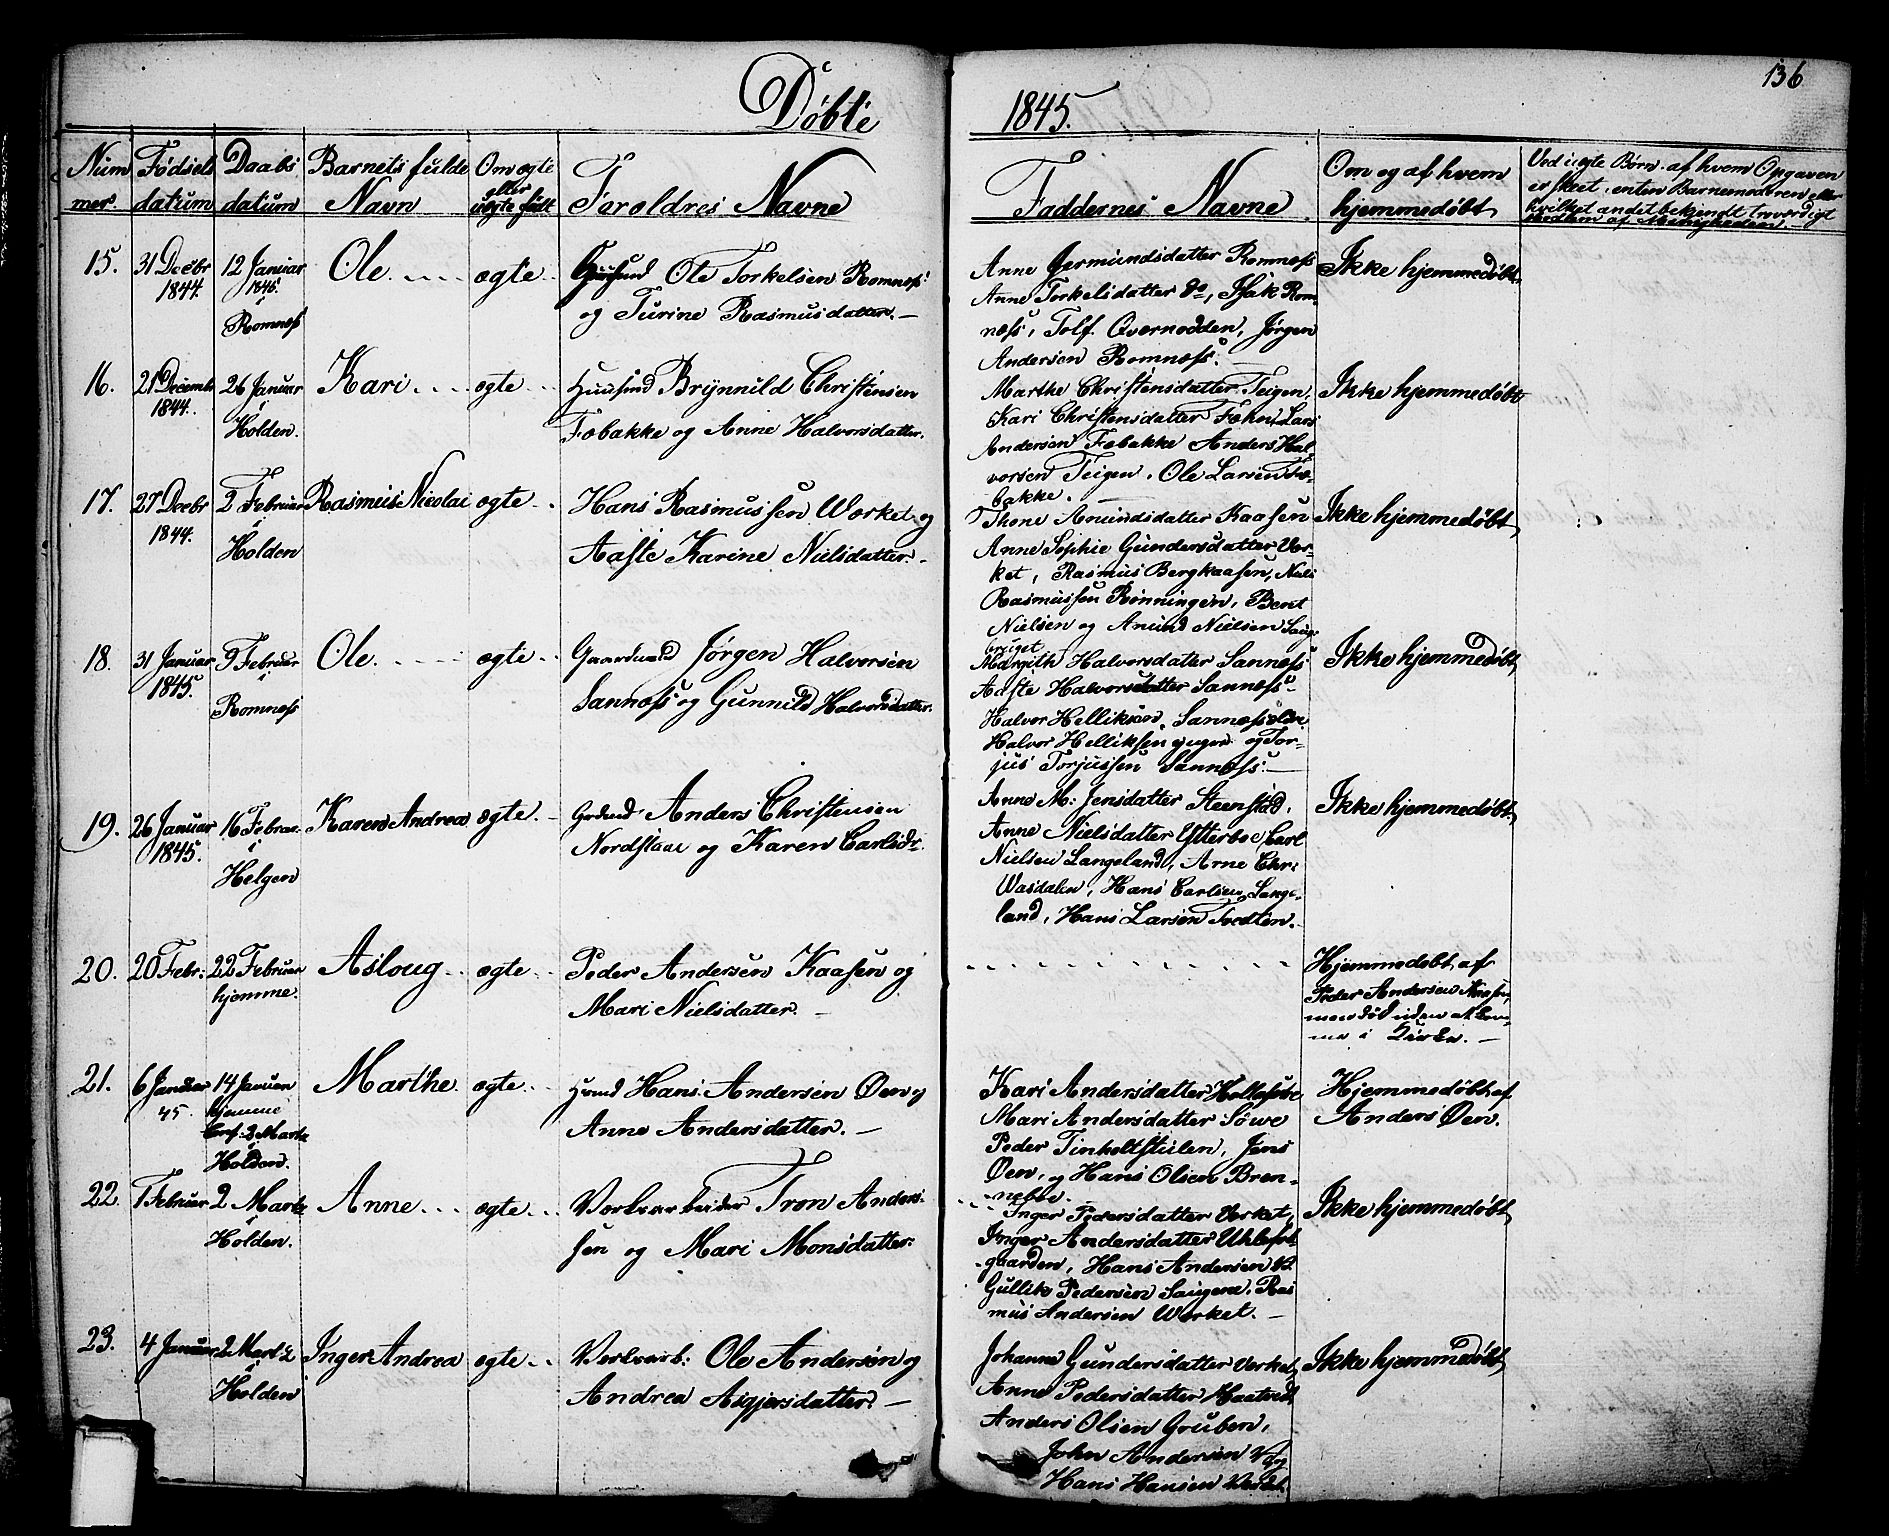 136
Döbte 1845.
Num
mer.
Födsels
datum
Daabs
datum
Barnets fulde
Navn
Om ægte
eller
uægte födt
Forældres Navne
Faddernes Navne
Om og af hvem
hjemmedöbt
Ved uægte Börn, af hvem Opgaven
er skeet, enten Barnemoderen eller
hvilket andet bekjendt troværdigt
Medlem af Menigheden.
15.
31 Decbr
1844.
12 Januar
1845.
i
Romnæss
Ole.
ægte
Huusmd Ole Torkelsen Romnæss
og Turine Rasmusdatter.
Anne Germundsdatter Romnæss
Anne Torkelsdatter do, Isak Rom
næss, Tolf. Overnodden, Jörgen
Andersen Romnæss.
Ikke hjemmedöbt
16.
21 Decembr
1844.
26 Januar
i
Holden.
Kari
ægte
Huusmd Brynnild Christensen
Fæbakke og Anne Halvorsdatter.
Marthe Christensdatter Teigen,
Kari Christensdatter Fæhn, Lars
Andersen Fæbakke Anders Hal
vorsen Teigen, Ole Larsen Fæ
bakke.
Ikke hjemmedöbt
17.
27 Decbr
1844.
2 Februar
i
Holden
Rasmus Nicolai
ægte
Hans Rasmussen Værket og
Aaste Karine Nielsdatter.
Thone Amundsdatter Kaasen
Anne Sophie Gundersdatter Vær
ket, Rasmus Bergkaasen, Niels
Rasmussen Rönningen, Bent
Nielsen og Amund Nielsen Saug
bruget
Ikke hjemmedöbt
18.
31 Januar
1845.
9 Februar
i
Romnæss
Ole.
ægte
Gaardmd Jörgen Halvorsen
Sannæss og Gunnild Halvorsdatter.
Margith Halvorsdatter Sannæss
Aaste Halvorsdatter Sannæss
Halvor Helliksen Sannæss eldre
Halvor Helliksen yngre og Tor
jus Torjussen Sannæss.
Ikke hjemmedöbt
19.
26 Januar
1845.
16 Februar
i
Helgen
Karen Andrea
ægte.
Gdmd Anders Christensen
Nordstaae og Karen Carlsdr.
Anne M: Jensdatter Steenstad,
Anne Nielsdatter Efterboe, Carl
Nielsen Langeland, Arne Chr:
Wasdalen, Hans Carlsen Lange
land, Hans Larsen Tvedten.
Ikke hjemmedöbt
20.
20 Febr:
22 Februar
hjemme.
Asloug
ægte
Peder Andersen Kaasen og
Mari Nielsdatter.
Hjemmedöbt af
Peder Andersen Kaasen
men död uden at kom
me i Kirken.
21.
6 Januar
45.
14 Januar
hjemme
Conf: 2 Marts
i
Holden.
Marthe
ægte
Hmd Hans Andersen Öen og
Anne Andersdatter.
Kari Andersdatter Hollesöbe
Mari Andersdatter Söwe
Peder Tinholtstulen, Jens
Öen, og Hans Olsen Bren
neboe.
Hjemmedöbt af
Anders Öen.
22
1 Februar
2 Marts
i
Holden.
Anne
ægte
Værksarbeider Tron Anders
sen og Mari Monsdatter.
Inger Pedersdatter Værket,
Inger Andersdatter Uhlefos
gaarden, Hans Andersen V.
Gullik Pedersen Saugene, Ras
mus Andersen Værket.
Ikke hjemmedöbt
23.
4 Januar
2 Marts
i
Holden
Inger Andrea
ægte
Værksarb: Ole Andersen og
Andrea Asgjersdatter
Johanne Gundersdatter Værket,
Anne Pedersdatter Maatvedt,
Anders Olsen Gruben,
John Andersen V. og
Hans Hansen Værket.
Ikke hjemmedöbt